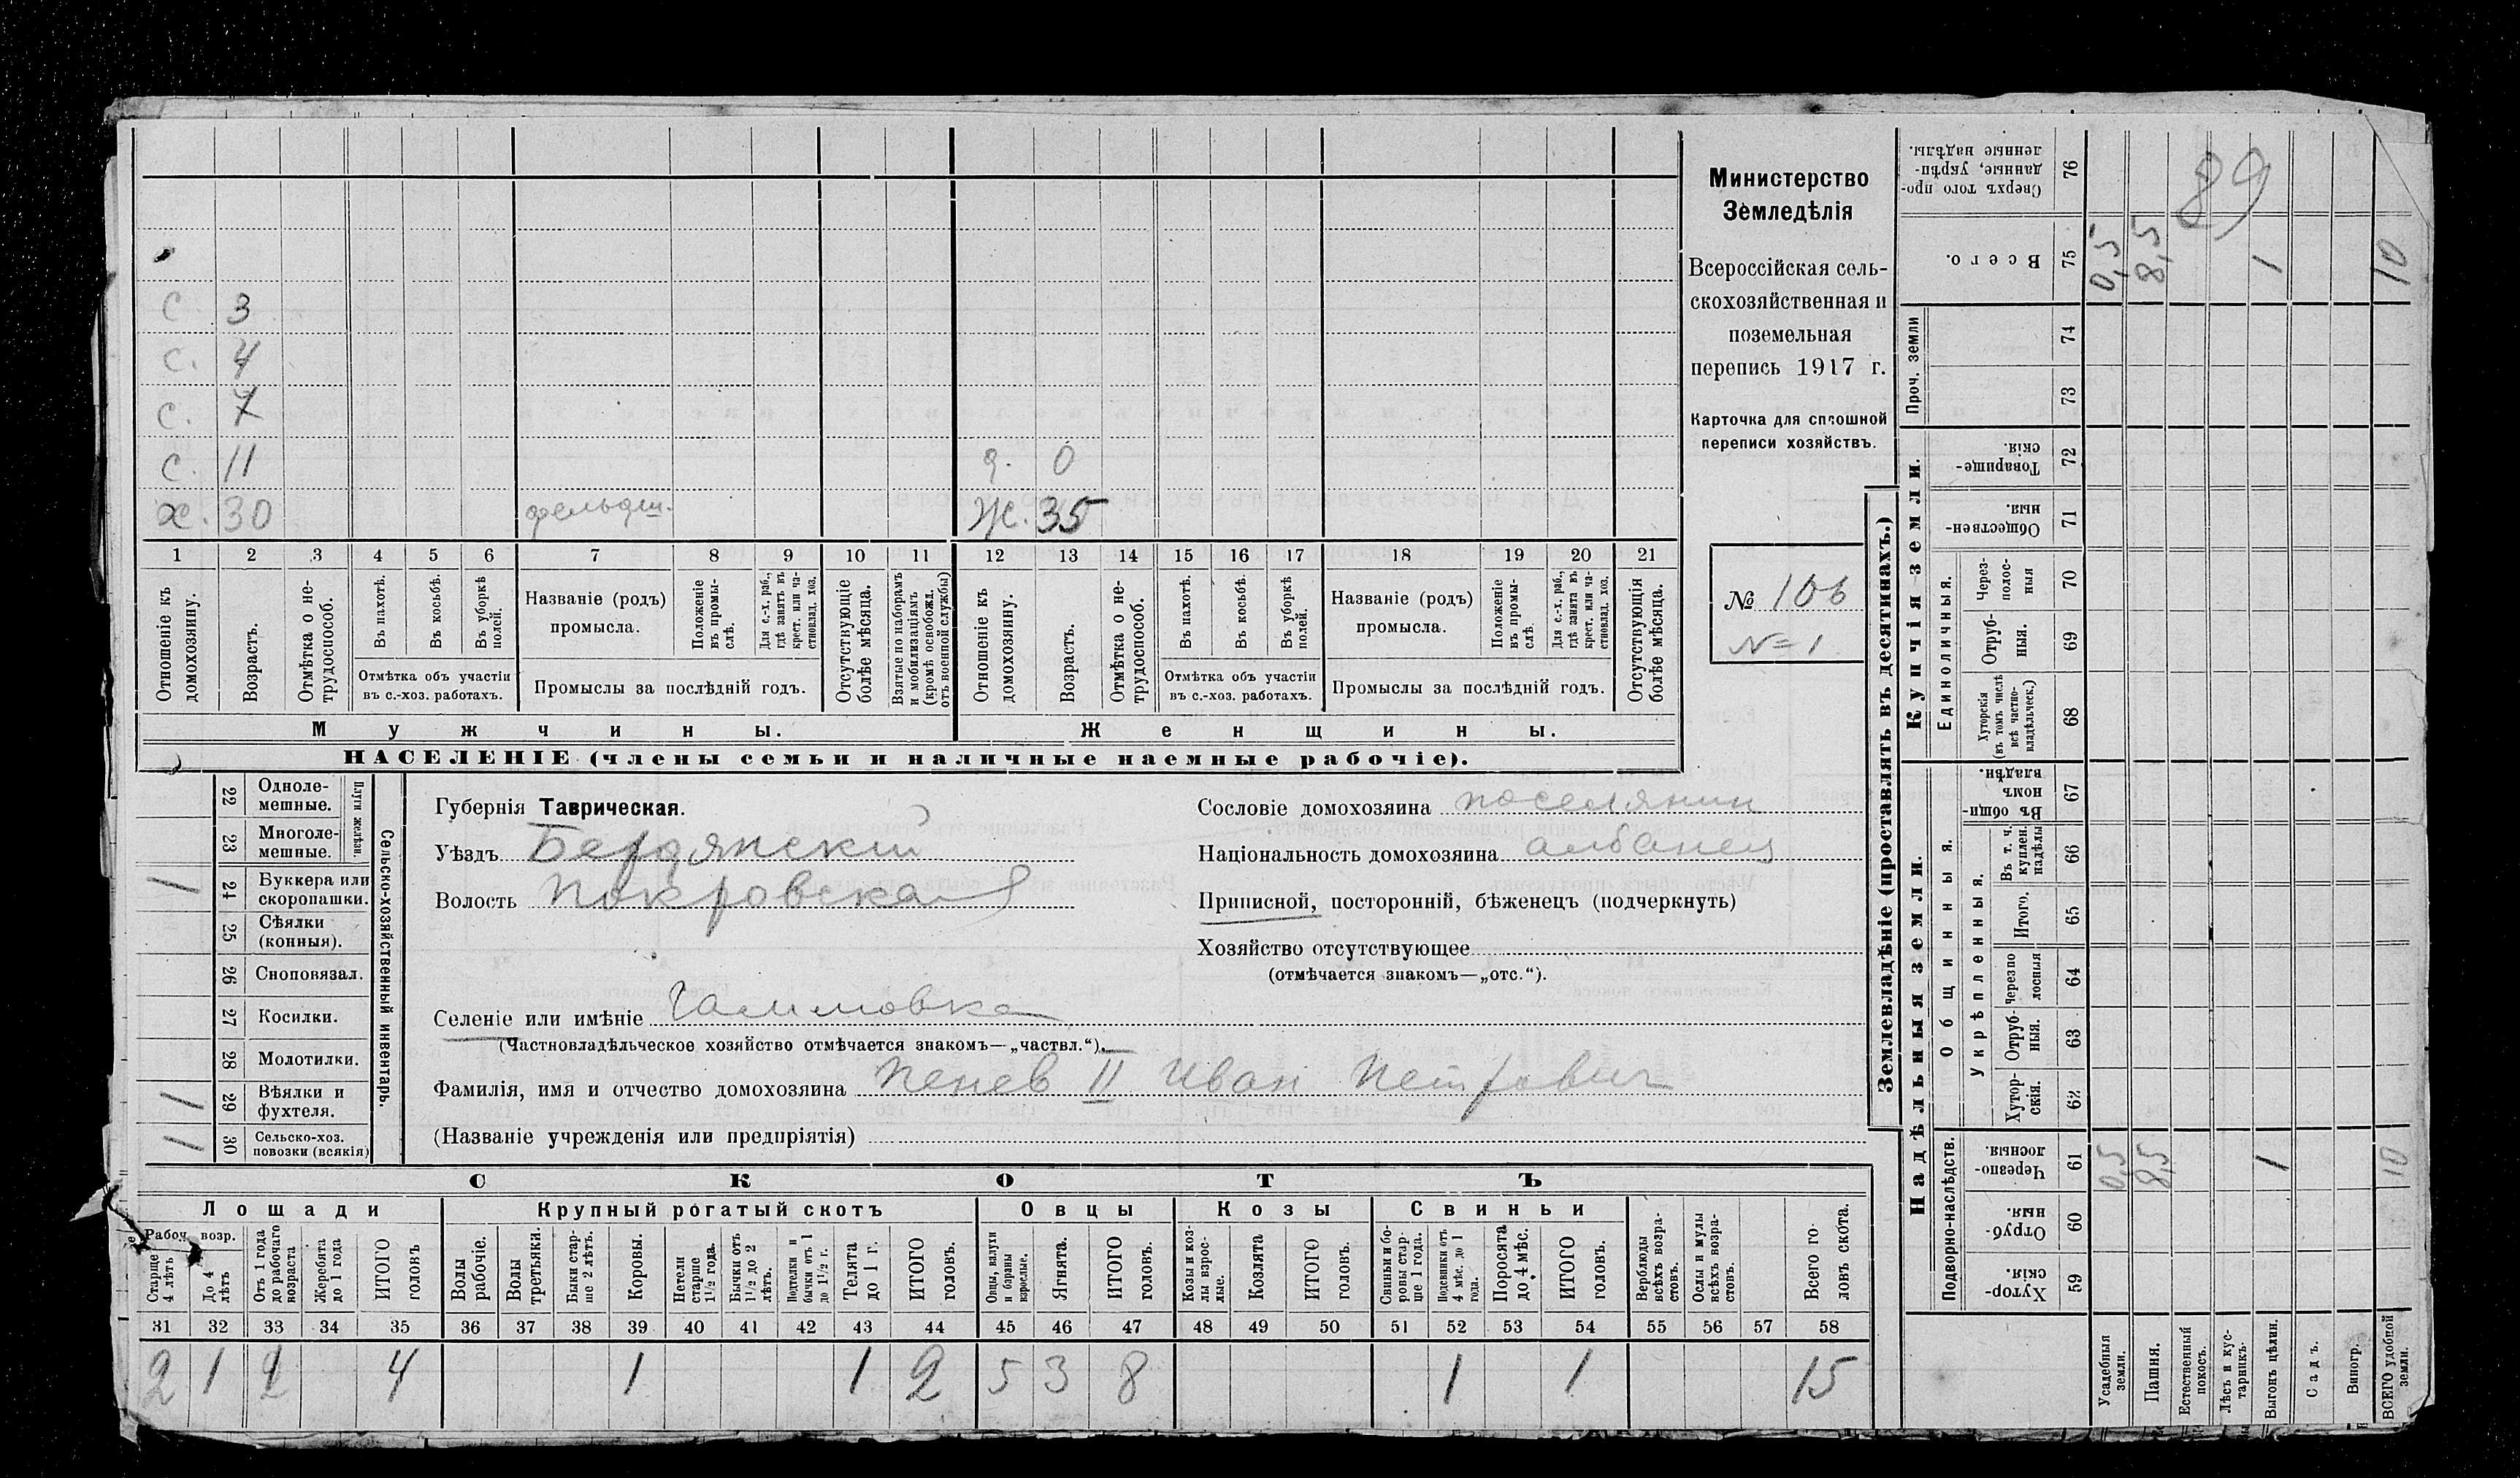 Министерство
Земледѣлія
Всероссійская сель-
скохозяйственная и
поземельная
перепись 1917 г.
Карточка для сплошной
переписи хозяйствъ.
№ 106
N=1
С. 3
С. 4
С. 7
С. 11
д. 0
х. 30 фельдш. Ж. 35
1 2 3 4 5 6 7 8 9 10 11 12 13 14 15 16 17 18 19 20 21
Отношеніе къ домохозяину.
Возрастъ.
Отмѣтка о не-трудоспособ.
Въ пахотѣ.
Въ косьбѣ.
Въ уборкѣ полей.
Отмѣтка объ участіи
въ с.-хоз. работахъ.
Названіе (родъ)
промысла.
Положеніе въ промы-слѣ.
Для с.-х. раб., гдѣ занятъ въ крест. или ча-стновлад. хоз.
Промыслы за послѣдній годъ.
Отсутствующіе болѣе мѣсяца.
Взятые по наборамъ и мобилизаціямъ (кромѣ освобожд. отъ военной службы)
Отношеніе къ домохозяину.
Возрастъ.
Отмѣтка о не-трудоспособ.
Въ пахотѣ.
Въ косьбѣ.
Въ уборкѣ полей.
Отмѣтка объ участіи
въ с.-хоз. работахъ.
Названіе (родъ)
промысла.
Положеніе въ промы-слѣ.
Для с.-х. раб., гдѣ занята въ крест. или ча-стновлад. хоз.
Промыслы за послѣдній годъ.
Отсутствующія болѣе мѣсяца.
Мужчины. Женщины.
НАСЕЛЕНІЕ (члены семьи и наличные наемные рабочіе).
Сельско-хозяйственный инвентарь.
Плуги желѣзн.
22 Одноле-мешные.
23 Многоле-мешные.
1 24 Буккера или скоропашки.
25 Сѣялки (конныя).
26 Сноповязал.
27 Косилки.
28 Молотилки.
1 29 Вѣялки и фухтеля.
1 30 Сельско-хоз. повозки (всякія)
Губернія Таврическая.
Уѣздъ Бердянский
Волость Покровская
Селеніе или имѣніе Гаммовка
(Частновладѣльческое хозяйство отмѣчается знакомъ—„частвл.“).
Фамилія, имя и отчество домохозяина Пенев II Иван Петрович
(Названіе учрежденія или предпріятія)
Сословіе домохозяина поселянин
Національность домохозяина албанец
Приписной, посторонній, бѣженецъ (подчеркнуть)
Хозяйство отсутствующее
(отмѣчается знакомъ—„отс.“).
СКОТЪ
Лошади Крупный рогатый скотъ Овцы Козы Свиньи
Рабоч. возр.
Старше 4 лѣтъ
До 4 лѣтъ
Отъ 1 года до рабочаго возраста
Жеребята до 1 года
ИТОГО головъ
Волы рабочіе.
Волы третьяки.
Быки стар-ше 2 лѣтъ.
Коровы.
Нетели старше 1½ года.
Бычки отъ 1½ до 2 лѣтъ.
Подтелки и бычки отъ 1 до 1½ г.
Телята до 1 г.
ИТОГО головъ.
Овцы, валухи и бараны взрослые.
Ягнята.
ИТОГО головъ.
Козы и коз-лы взрос-лые.
Козлята
ИТОГО головъ.
Свиньи и бо-ровы стар-ше 1 года.
Подсвинки отъ 4 мѣс. до 1 года.
Поросята до 4 мѣс.
ИТОГО головъ.
Верблюды всѣхъ возра-стовъ.
Ослы и мулы всѣхъ возра-стовъ.
Всего го-ловъ скота.
31 32 33 34 35 36 37 38 39 40 41 42 43 44 45 46 47 48 49 50 51 52 53 54 55 56 57 58
2 1 1 4 1 1 2 5 3 8 1 1 15
Землевладѣніе (проставлять въ десятинахъ.)
Надѣльныя земли. Купчія земли. Проч. земли
Подворно-наслѣдств. Общинныя. Укрѣпленныя. Единоличныя.
59 Хутор-скія.
60 Отруб-ныя.
61 Черезпо-лосныя. 0,5 8,5 1 10
62 Хутор-скія.
63 Отруб-ныя.
64 Черезпо лосныя
65 Итого.
66 Въ т. ч. куплен. надѣлы
67 Въ общи-номъ владѣн.
68 Хуторскія (въ томъ числѣ всѣ частно-владѣльческ.)
69 Отруб-ныя.
70 Через-полос-ныя
71 Обществен-ныя.
72 Товарище-скія.
73
74
75 Всего. 0,5 8,5 1 10
76 Сверхъ того про-данные, укрѣп-ленные надѣлы.
89
Усадебныя земли.
Пашня.
Естественный покосъ.
Лѣсъ и кус-тарникъ.
Выгонъ цѣлин.
Садъ.
Виногр.
ВСЕГО удобной земли.